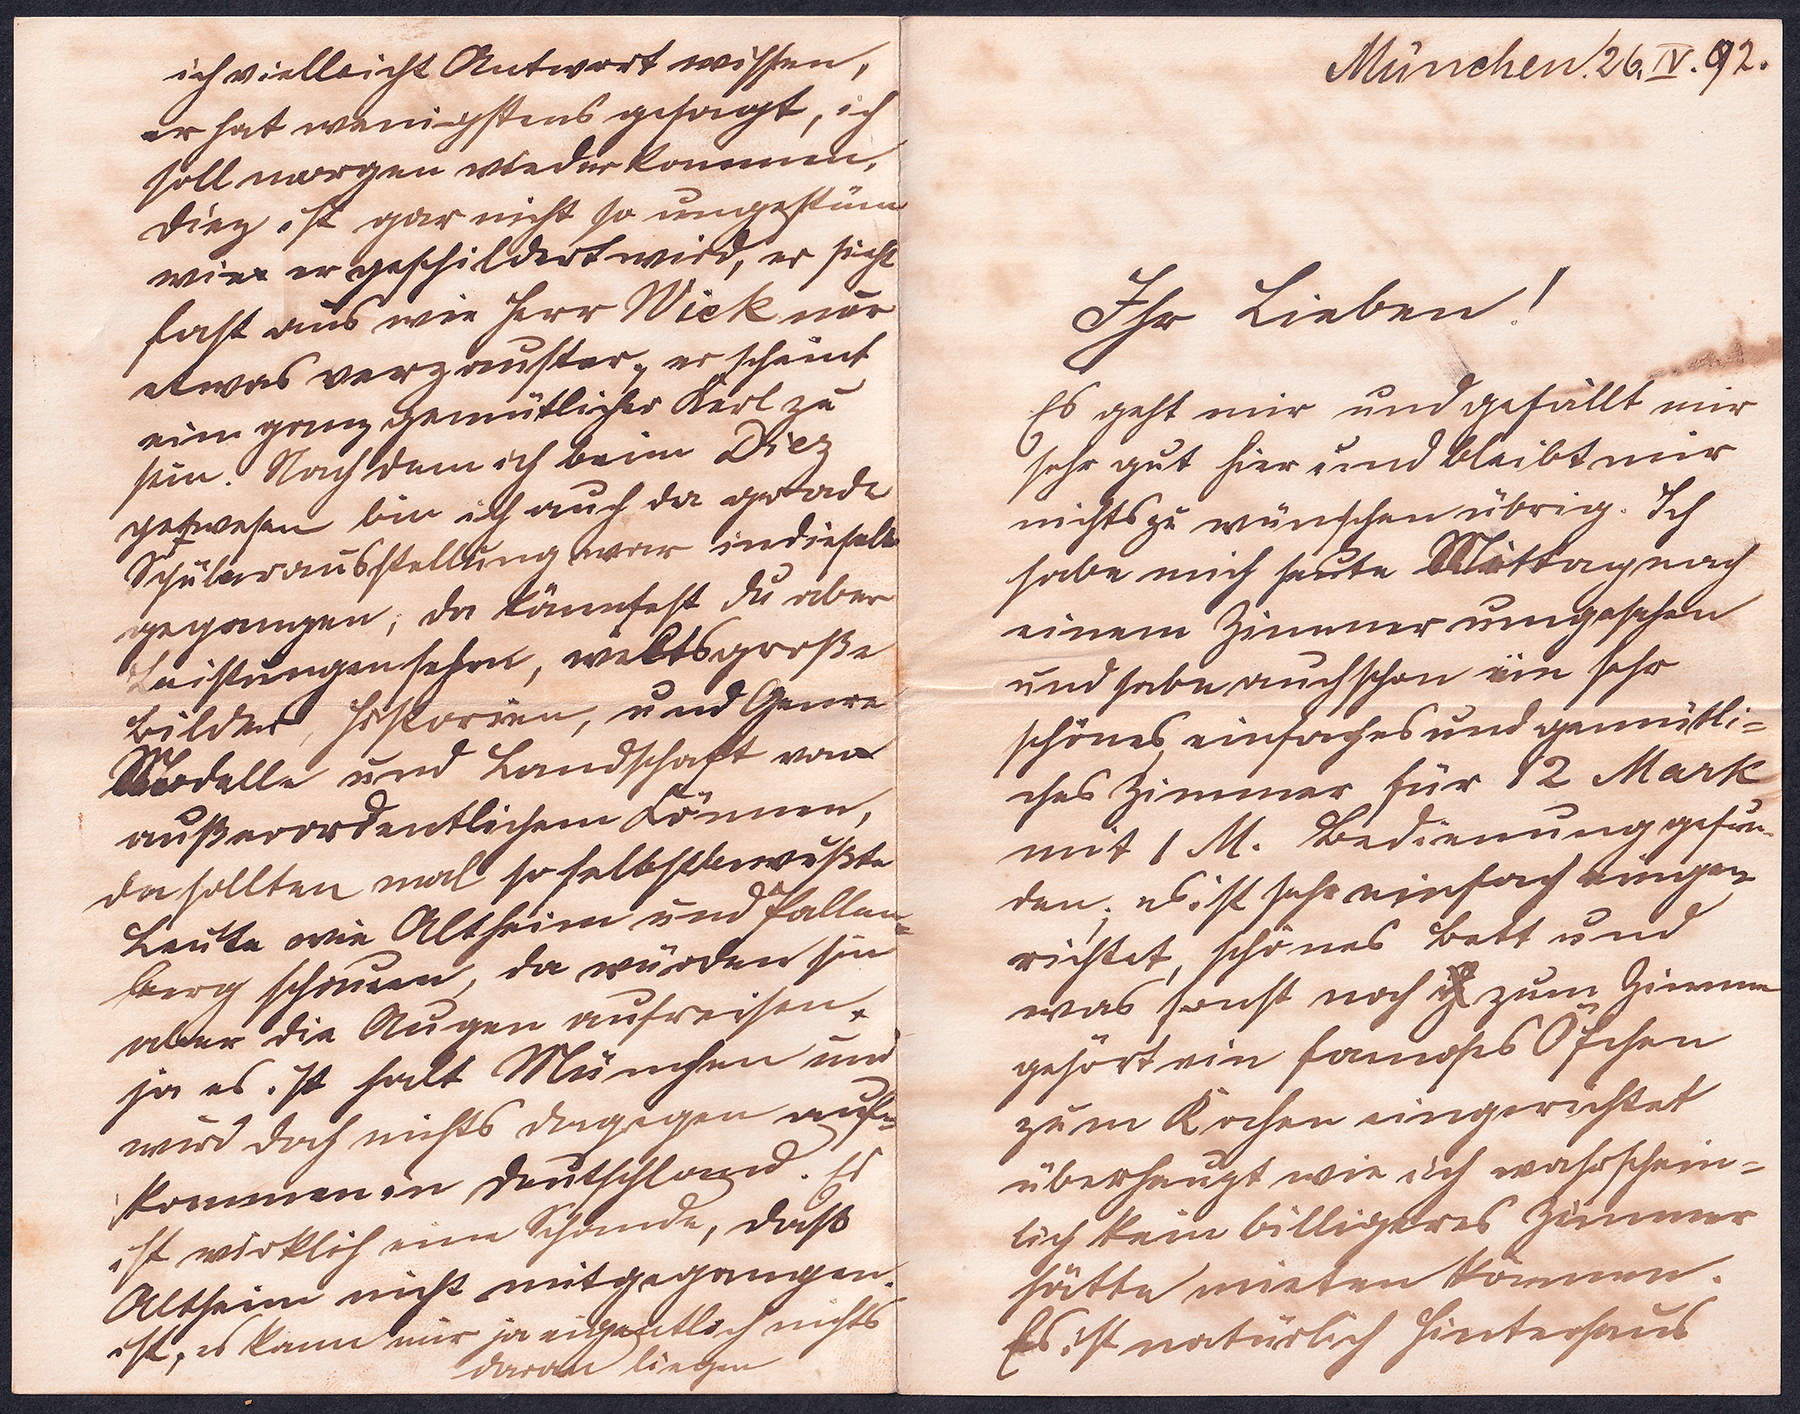 München 26. IV. 92.
Ihr Lieben!
Es geht mir und gefällt mir
sehr gut hier und bleibt mir
nichts zu wünschen übrig. Ich
habe mich heute Mittag nach
einem Zimmer umgesehen
und habe auch schon ein sehr
schönes, einfaches und gemütli=
ches Zimmer für 12 Mark
mit 1 M. Bedienung gefun-
den; es ist sehr einfach einge-
richtet, schönes Bett und
was sonst noch zum Zimmer
gehört ein famoses Öfchen
zum Kochen eingerichtet
überhaupt wie ich wahrschein=
lich kein billigeres Zimmer
hätte mieten können.
Es ist natürlich Hinterhaus
ich vielleicht Antwort wissen,
er hat wenigstens gesagt, ich
soll morgen wieder kommen.
Diez ist gar nicht so ungestüm
wie er geschildert wird, er sieht
fast aus wie Herr Wiek nur
etwas verzauster, er scheint
ein ganz gemütlicher Kerl zu
sein. Nachdem ich beim Diez
gewesen bin ich auch da grade
Schülerausstellung war in dieselbe
gegangen, da kännsest du aber
Leistungen sehen, weltsgroße
Bilder, Historien, und Genre
Modelle und Landschaft von
außerordentlichem Können,
da sollten mal so selbstbewußte
Leute wie Altheim und Fallen=
berg schauen, da würden sie
aber die Augen aufreisen.
ja es ist halt München und
wird doch nichts dagegen auf=
kommen in Deutschland. Es
ist wirklich eine Schande, daß
Altheim nicht mitgegangen
ist, es kann mir ja eigentlich nichts
daran liegen